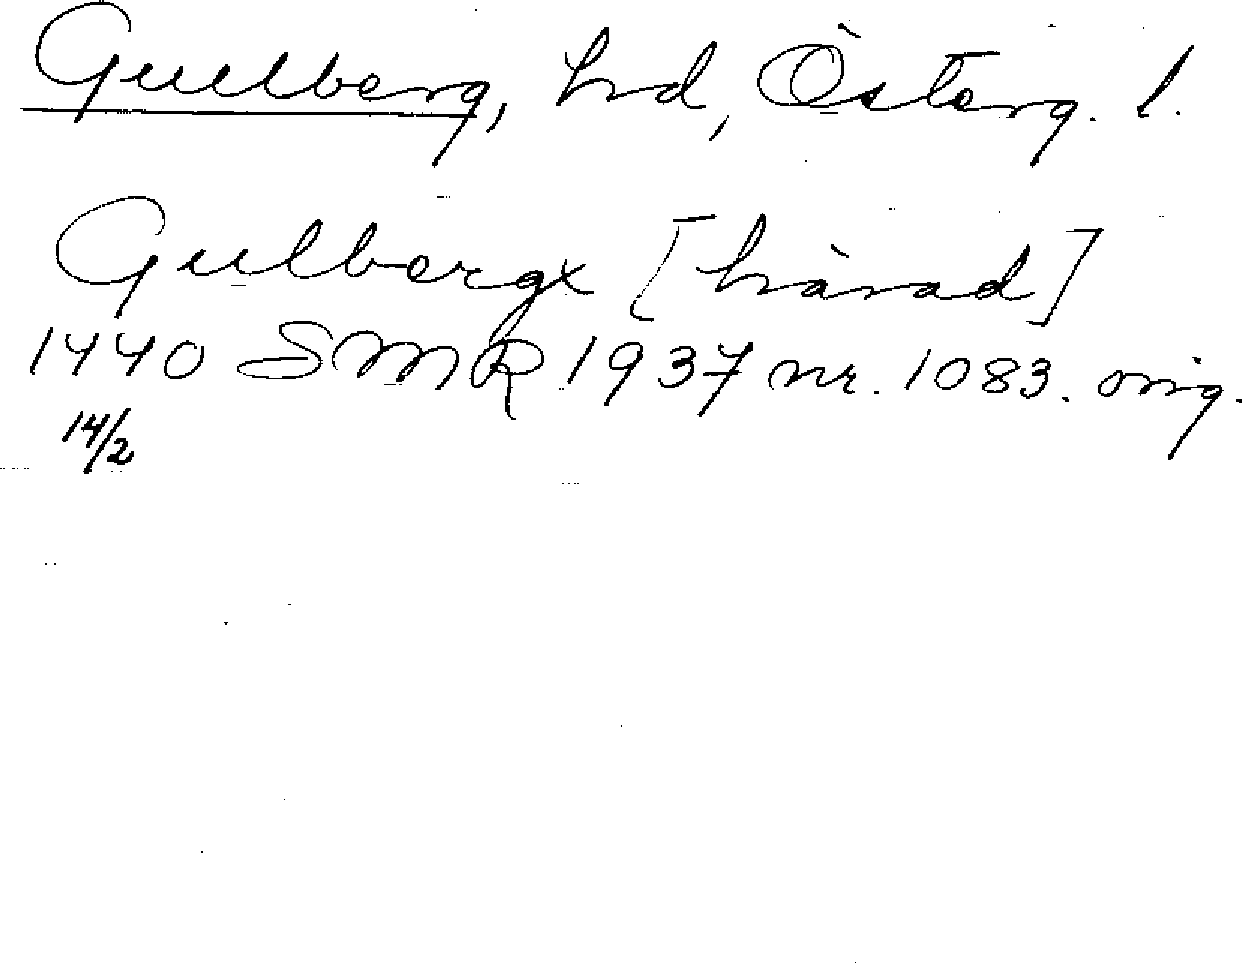 Gullberg, hd, Österg. l.
Gulbergx [härad]
1440 SMR 1937 nr. 1083. orig.
14/2